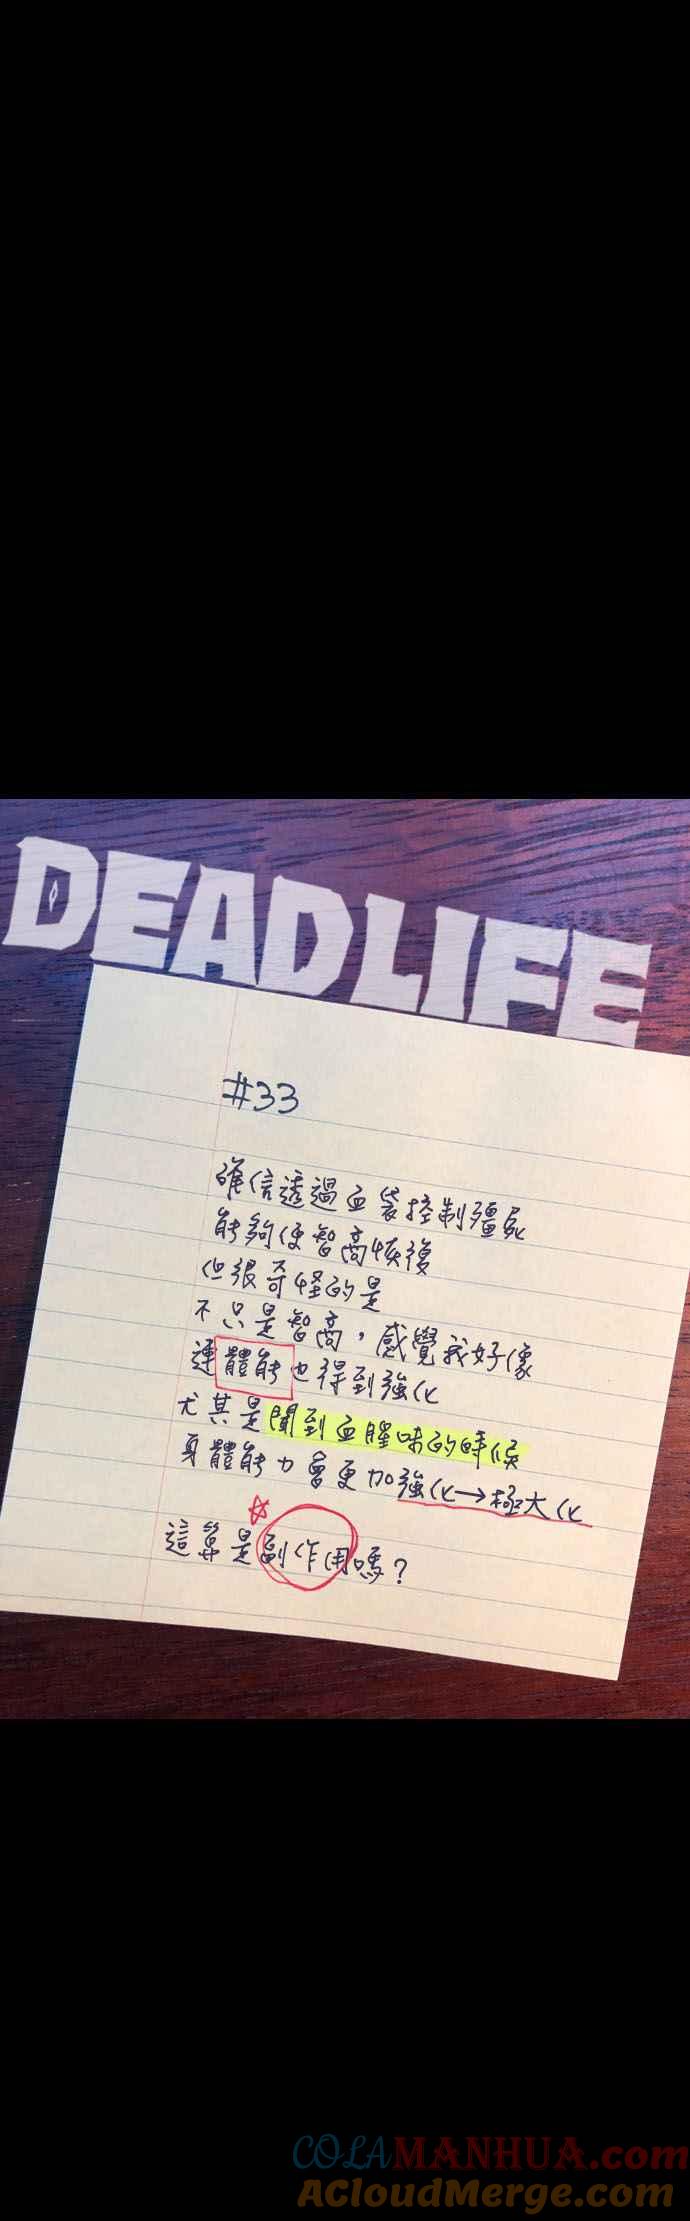 DEADLIFE
#33
確信透過血袋控制殭屍
能夠使智商恢復
但很奇怪的是
不只是智商，感覺我好像
連體能也得到強化
尤其是聞到血腥味的時候
身體能力會更加強化→極大化
這算是副作用嗎？
COLAMANHUA.com
ACloudMerge.com